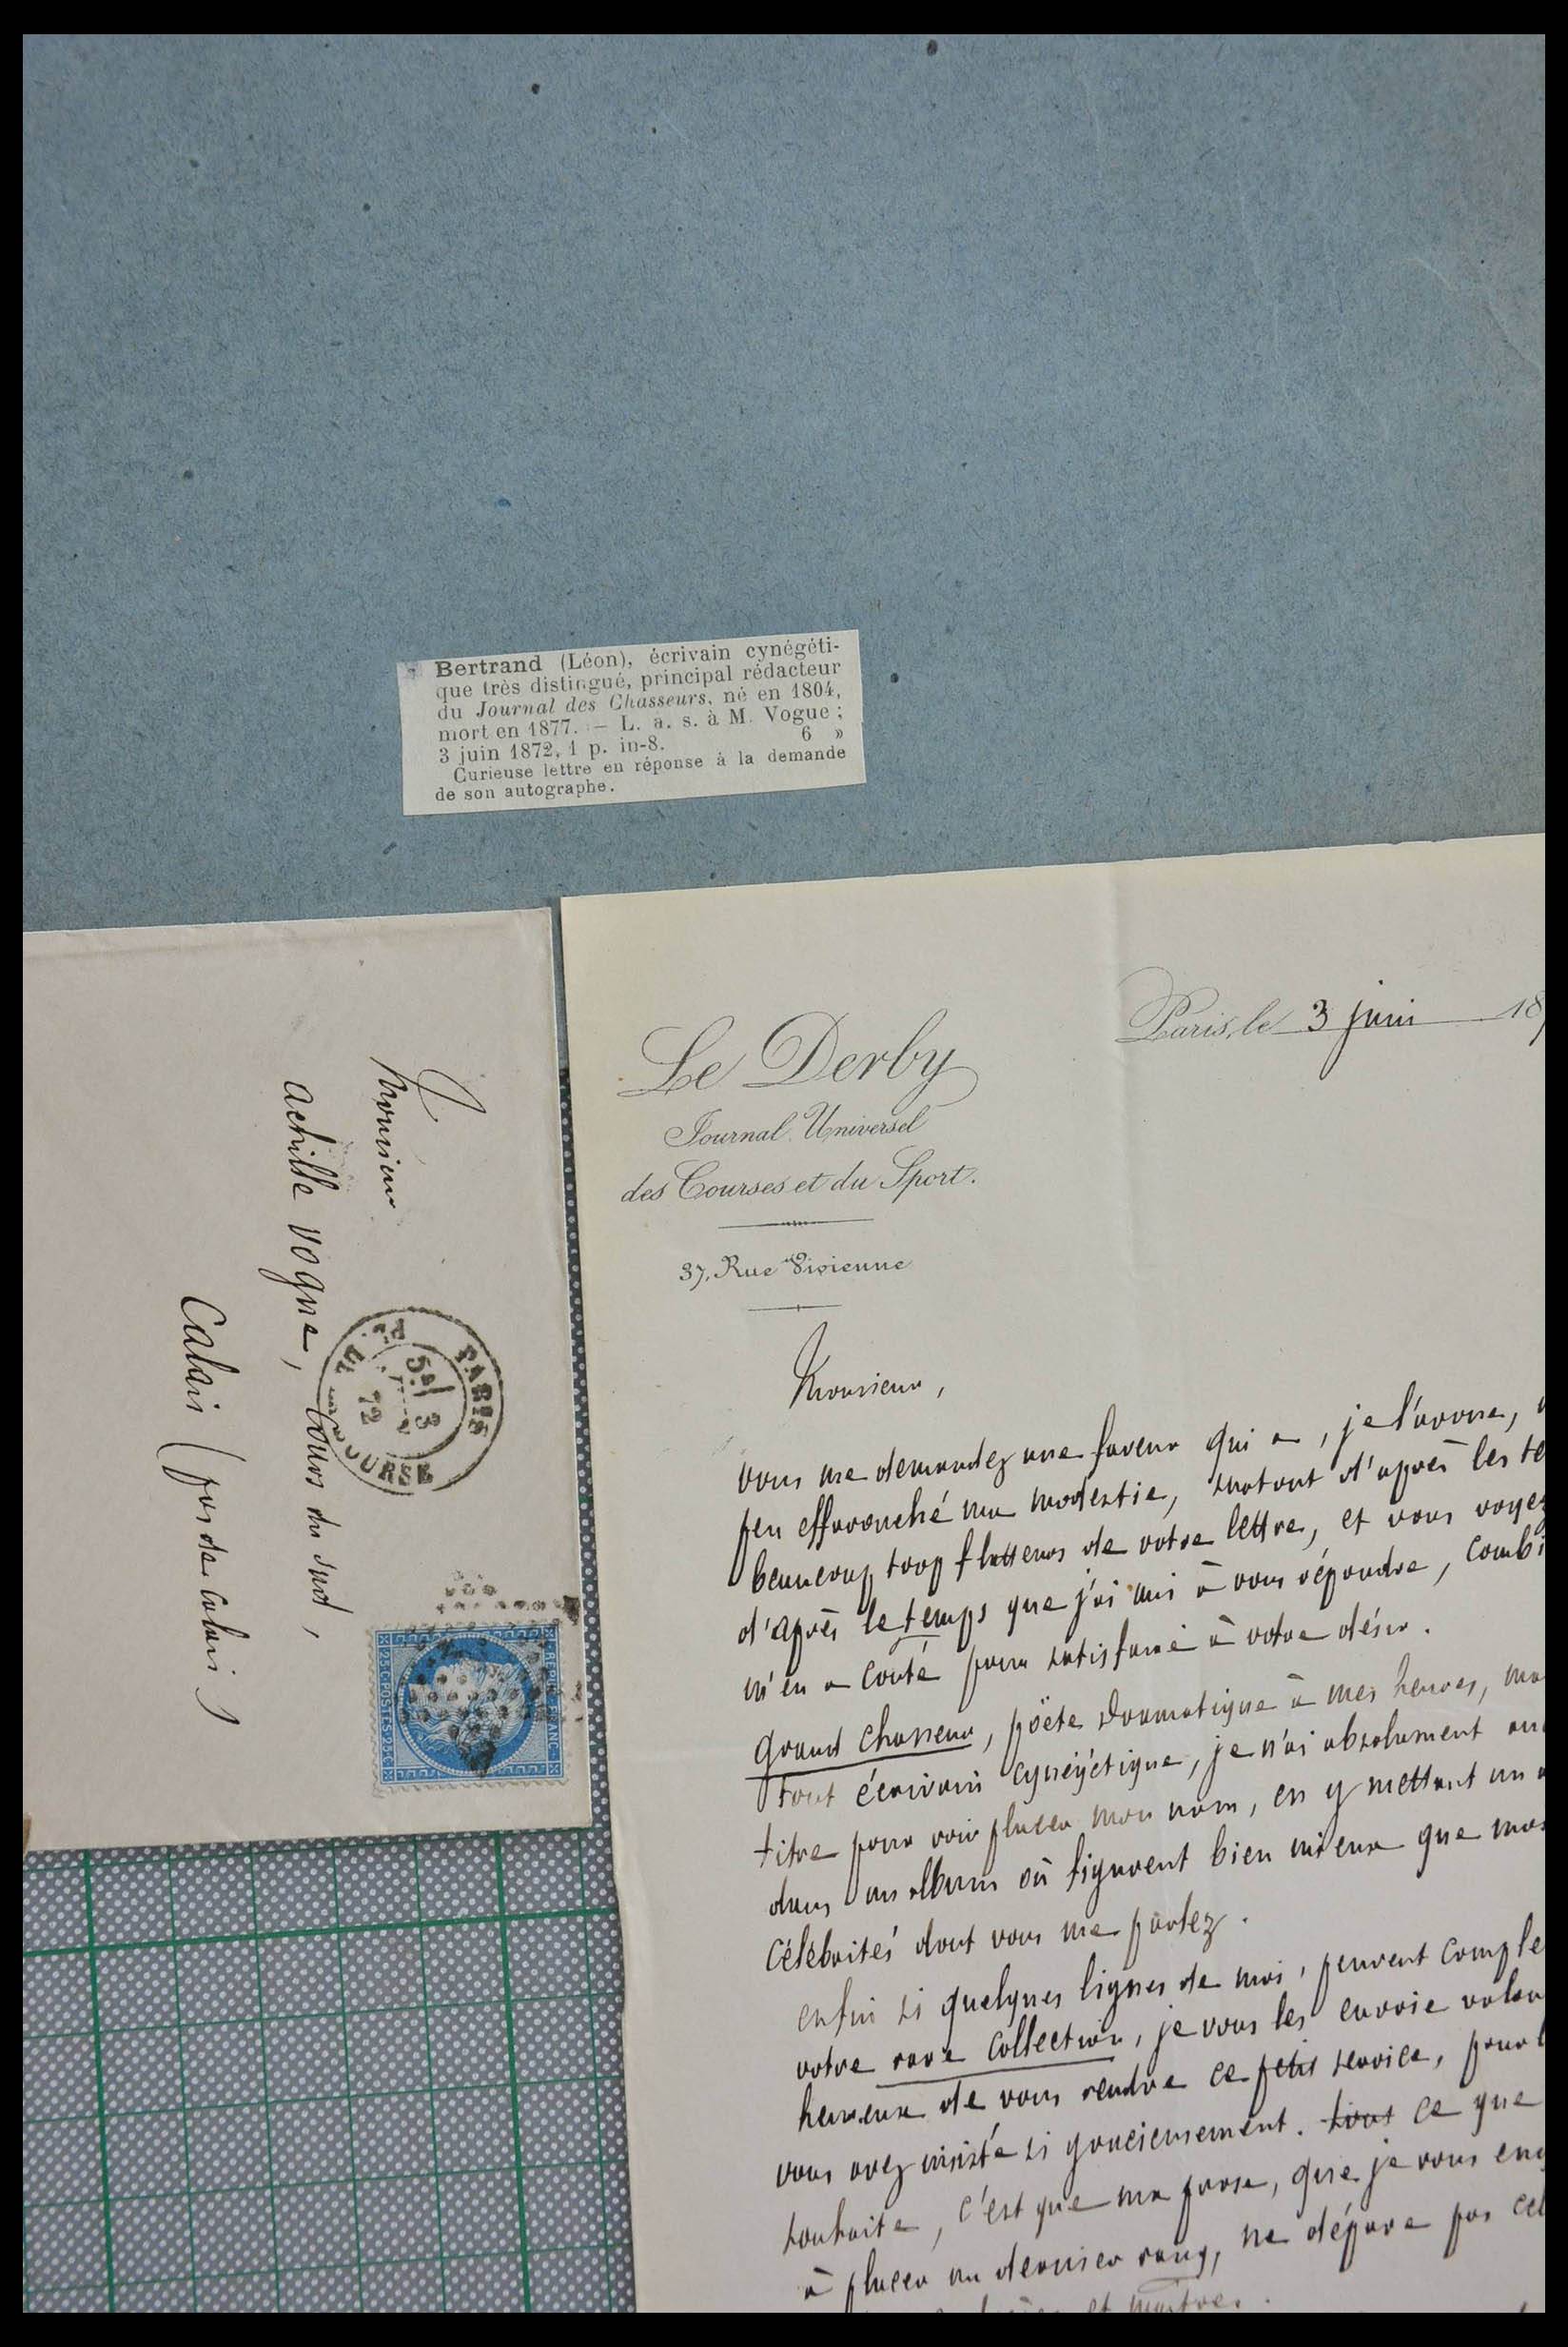 Bertrand (Léon), écrivain cynégéti-
que très distingué, principal rédacteur
du Journal des Chasseurs, né en 1804,
mort en 1877. — L. a. s. à M. Vogue ;
3 juin 1872, 1 p. in-8. 6 »
Curieuse lettre en réponse à la demande
de son autographe.
Monsieur
achille Vogue, Cours du sud,
Calais (pas de Calais)
PARIS
PL. DE LA BOURSE
5E/
3
72
REPUB. FRANC.
25·C·POSTES·25·C
Paris, le 3 juin 187
Le Derby
Journal Universel
des Courses et du Sport.
37, Rue Vivienne
Monsieur,
vous me demandez une faveur qui a, je l'avoue,
peu effarouché ma modestie, surtout d'après les te
beaucoup trop flatteurs de votre lettre, et vous voyez
d'après le temps que j'ai mis à vous répondre, combi
m'en a couté pour satisfaire à votre désir.
grand chasseur, poëte dramatique à mes heures, ma
tout écrivain cynégétique, je n'ai absolument au
titre pour voir placer mon nom, en y mettant un
dans un album où figurent bien mieux que moi
célébrités dont vous me parlez.
enfin si quelques lignes de moi, peuvent comple
votre rare collection, je vous les envoie volon
heureux de vous rendre ce petit service, pour l
vous avez insisté si gracieusement. tout ce que
souhaite, c'est que ma prose, que je vous eng
à placer au dernier rang, ne dépare pas cel
et maitres.